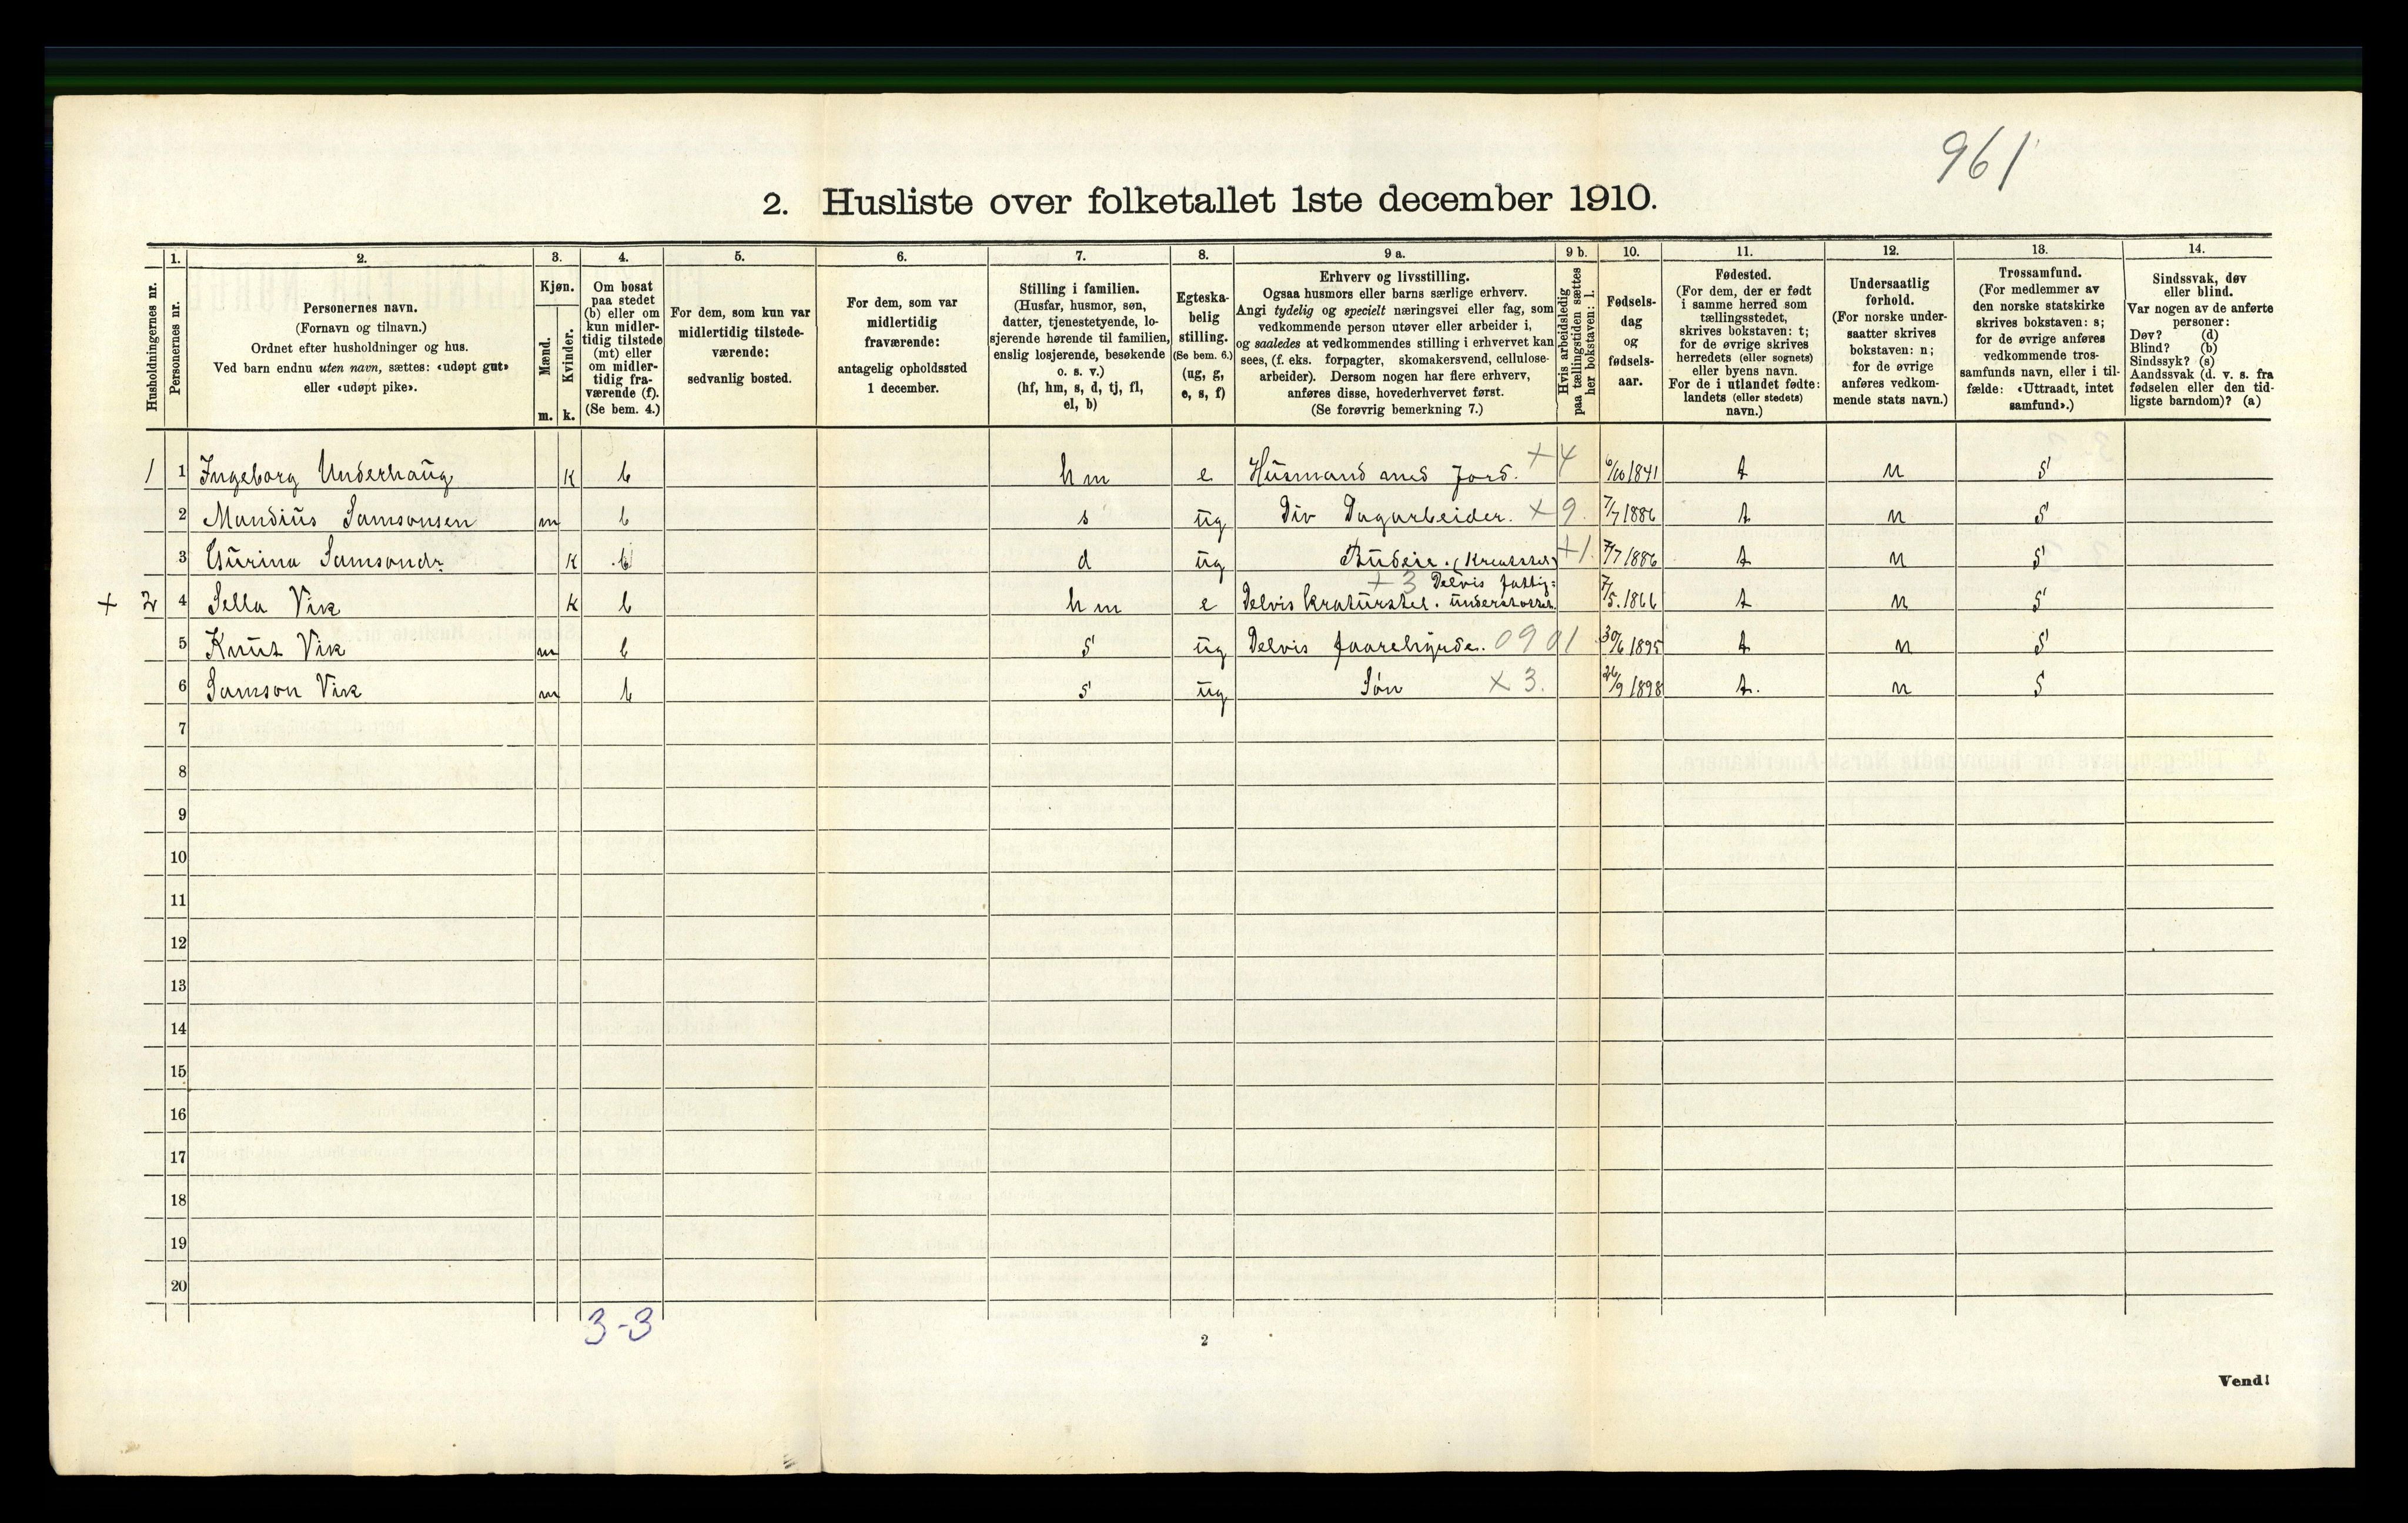 961
2. Husliste over folketallet 1ste december 1910.
Husholdningernes nr.
1.
Personernes nr.
2.
Personernes navn.
(Fornavn og tilnavn.)
Ordnet efter husholdninger og hus.
Ved barn endnu uten navn, sættes: «udøpt gut»
eller «udøpt pike».
3.
Kjøn.
Mænd.
m.
Kvinder.
k.
4.
Om bosat
paa stedet
(b) eller om
kun midler-
tidig tilstede
(mt) eller
om midler-
tidig fra-
værende (f).
(Se bem. 4.)
5.
For dem, som kun var
midlertidig tilstede-
værende:
sedvanlig bosted.
6.
For dem, som var
midlertidig
fraværende:
antagelig opholdssted
1 december.
7.
Stilling i familien.
(Husfar, husmor, søn,
datter, tjenestetyende, lo-
sjerende hørende til familien,
enslig losjerende, besøkende
o. s. v.)
(hf, hm, s, d, tj, fl,
el, b)
8.
Egteska-
belig
stilling.
(Se bem. 6.)
(ug, g,
e, s, f)
9 a.
Erhverv og livsstilling.
Ogsaa husmors eller barns særlige erhverv.
Angi tydelig og specielt næringsvei eller fag, som
vedkommende person utøver eller arbeider i,
og saaledes at vedkommendes stilling i erhvervet kan
sees, (f. eks. forpagter, skomakersvend, cellulose-
arbeider). Dersom nogen har flere erhverv,
anføres disse, hovederhvervet først.
(Se forøvrig bemerkning 7.)
9 b.
Hvis arbeidsledig
paa tællingstiden sættes
her bokstaven: l.
10.
Fødsels-
dag
og
fødsels-
aar.
11.
Fødested.
(For dem, der er født
i samme herred som
tællingsstedet,
skrives bokstaven: t;
for de øvrige skrives
herredets (eller sognets)
eller byens navn.
For de i utlandet fødte:
landets (eller stedets)
navn.)
12.
Undersaatlig
forhold.
(For norske under-
saatter skrives
bokstaven: n;
for de øvrige
anføres vedkom-
mende stats navn.)
13.
Trossamfund.
(For medlemmer av
den norske statskirke
skrives bokstaven: s;
for de øvrige anføres
vedkommende tros-
samfunds navn, eller i til-
fælde: «Uttraadt, intet
samfund».)
14.
Sindssvak, døv
eller blind.
Var nogen av de anførte
personer:
Døv? (d)
Blind? (b)
Sindssyk? (s)
Aandssvak (d. v. s. fra
fødselen eller den tid-
ligste barndom)? (a)
1 1 Ingeborg Underhaug K b hm e Husmand med Jord. +4 6/10 1841 t n s
2 Mandius Samsonsen m b s ug Div Dagarbeider. +9 7/7 1886 t n s
3 Gurina Samsondr. K b d ug Budeie. (Kreatstel) +1 7/7 1886 t n s
+ 3 Delvis fattig=
+ 2 4 Sella Vik K b hm e Delvis kraturstel. understøttet. 7/5. 1866 t n s
5 Knut Vik m b s ug Delvis faarehyrde. 0901 30/6 1895 t n s
6 Samson Vik m b s ug Søn × 3. 26/9 1898 t. n s
7
8
9
10
11
12
13
14
15
16
17
18
19
20
3-3
2
Vend!